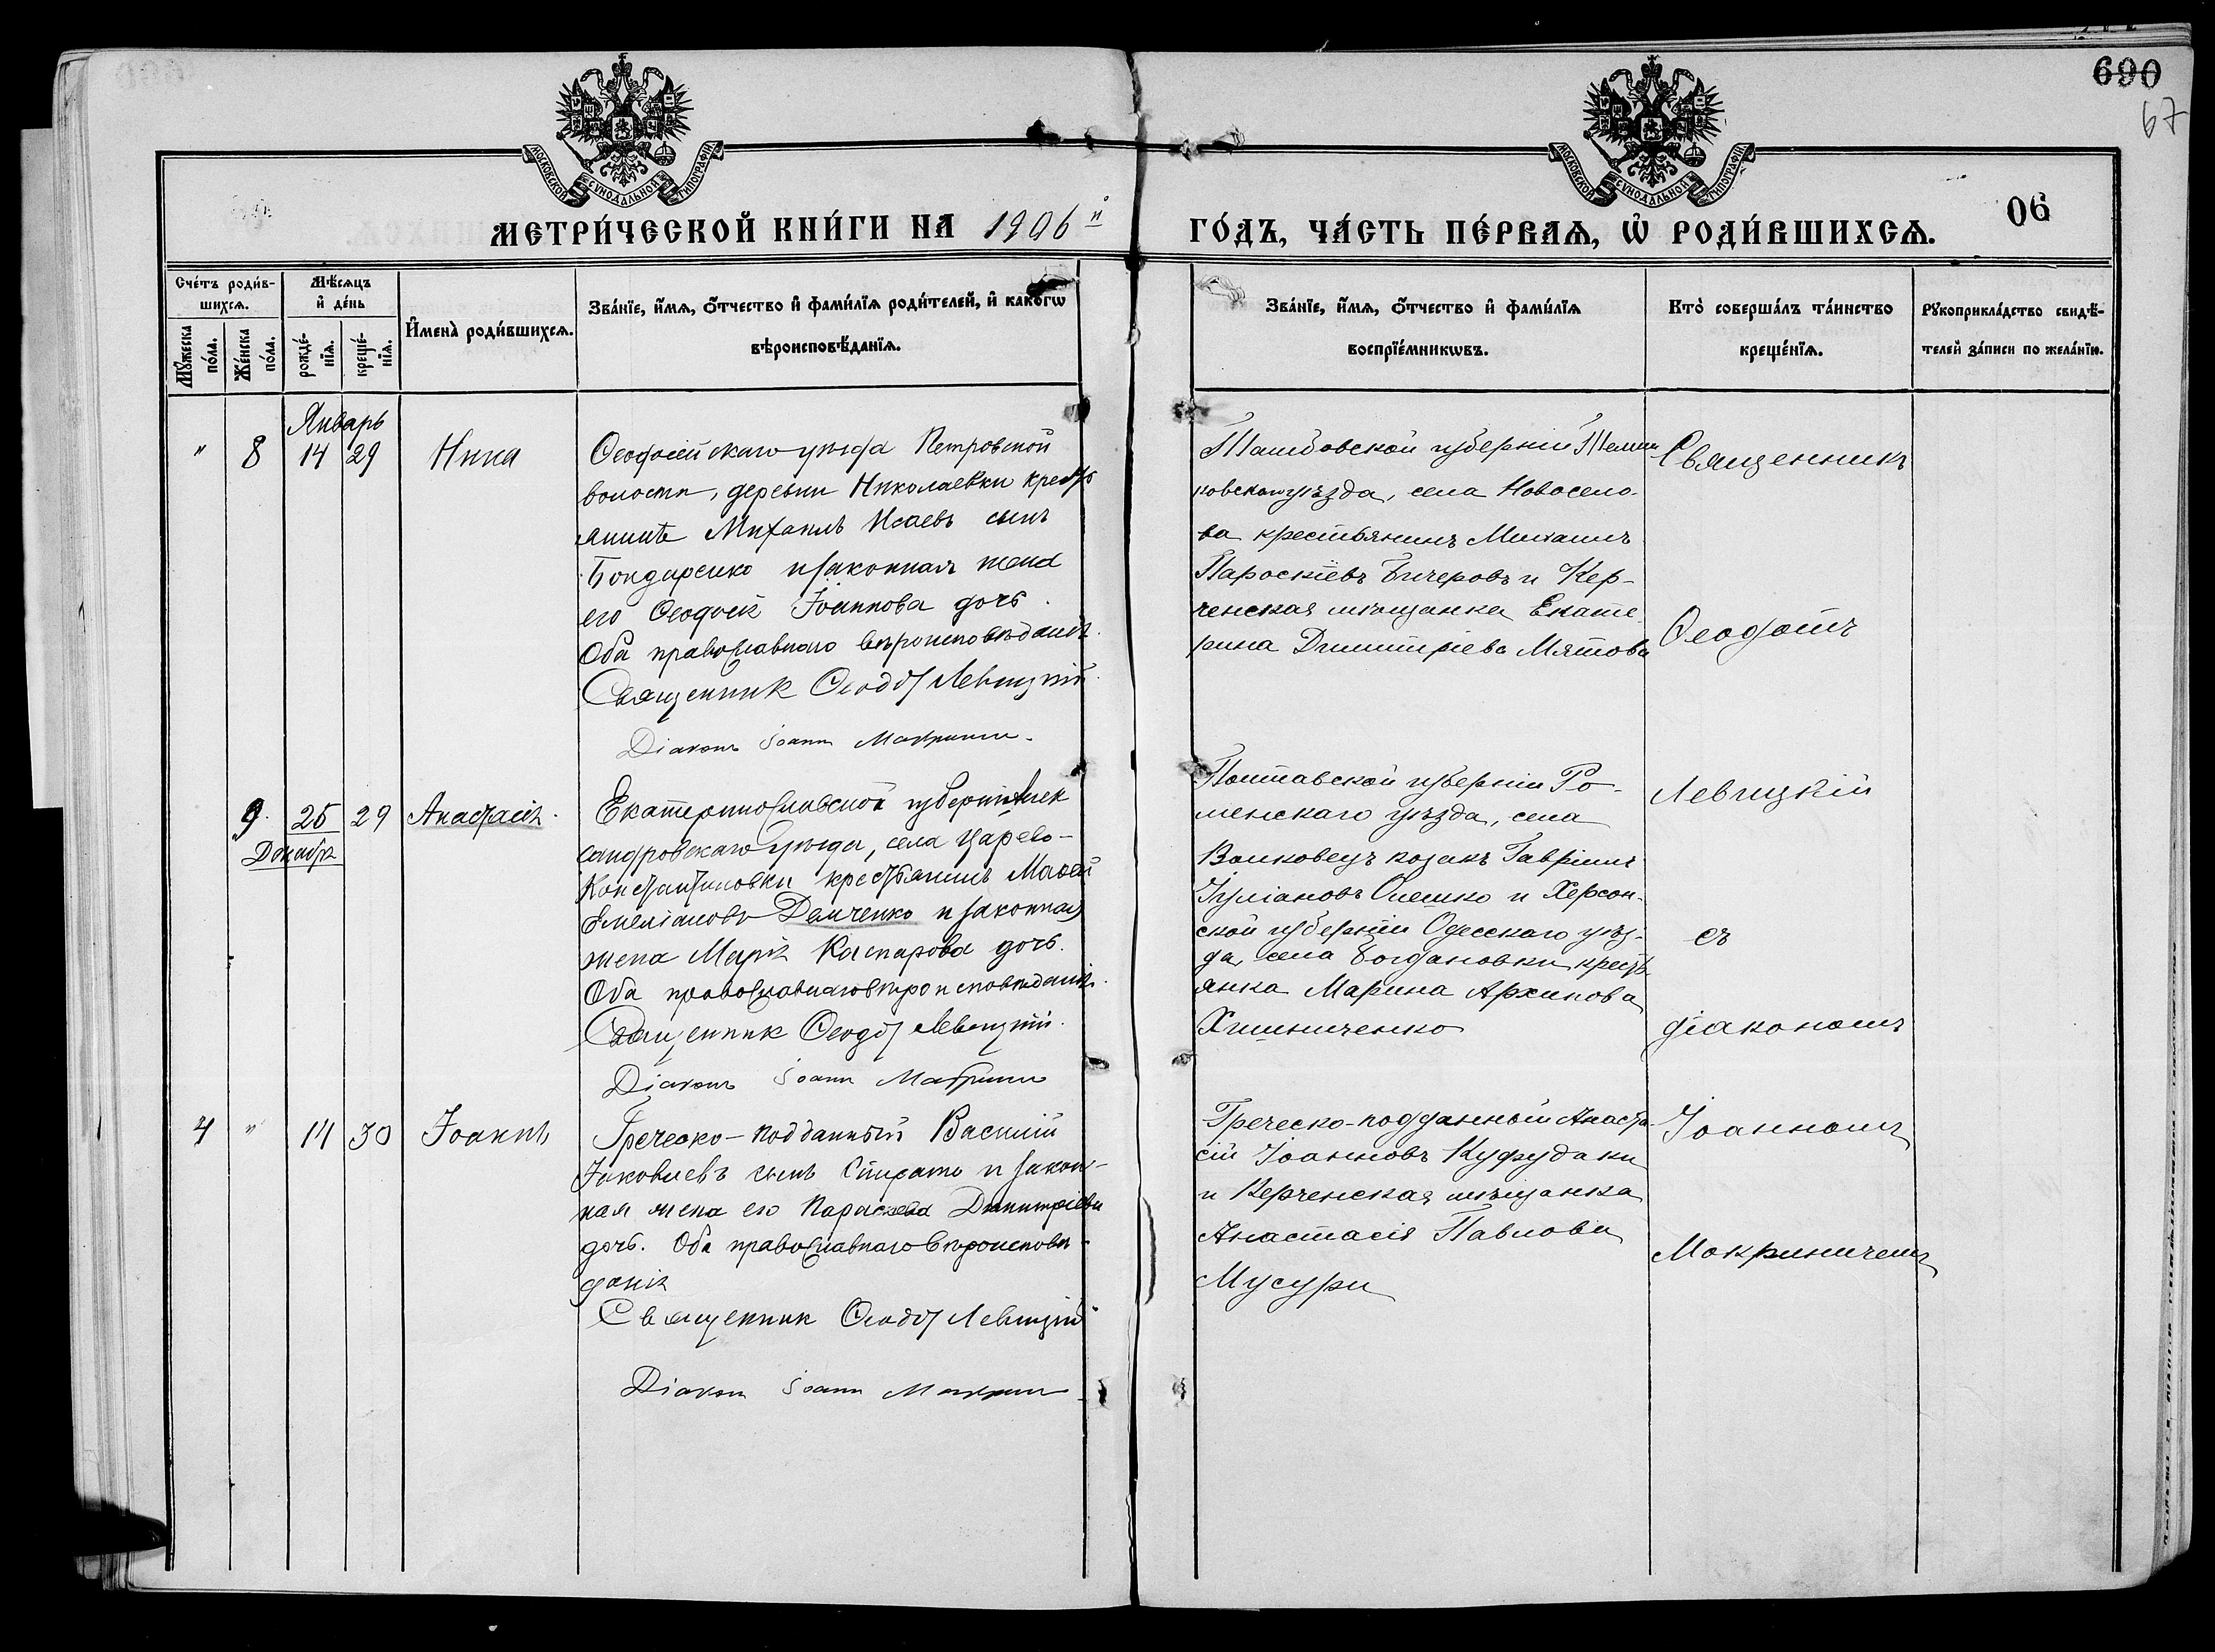 690
67
МОСКОВСКОЙ СѴНОДАЛЬНОЙ ТИПОГРАФІИ
МОСКОВСКОЙ СѴНОДАЛЬНОЙ ТИПОГРАФІИ
МЕТРИ́ЧЕСКОЙ КНИ́ГИ НА 1906й
ГО́ДЪ, ЧА́СТЬ ПЕ́РВАѦ, Ѽ РОДИ́ВШИХСѦ.
06
Сче́тъ роди́в-
шихсѧ.
Мꙋ́жеска по́ла.
Же́нска по́ла.
Мѣ́сѧцъ и҆ де́нь
рожде́-нїѧ.
креще́-нїѧ.
И҆мена̀ роди́вшихсѧ.
Зва́нїе, и҆́мѧ, ѻ҆́тчество и҆ фами́лїѧ роди́телей, и҆ како́гѡ
вѣроисповѣ́данїѧ.
Зва́нїе, и҆́мѧ, ѻ҆́тчество и҆ фами́лїѧ
воспрїе́мникѡвъ.
Кто̀ соверша́лъ та́инство
креще́нїѧ.
Рꙋкоприкла́дство свидѣ́-
телей за́писи по жела́нїю.
Январь
" 8 14 29 Нина
Ѳеодосійскаго уѣзда Петровской
волости, деревни Николаевки кресть
янинъ Михаилъ Исаевъ сынъ
Бондаренко и законная жена
его Ѳеодосія Іоаннова дочь.
Оба православнаго вѣроисповѣданія.
Священник Ѳеодот Левицкій
Діаконъ Іоанн
Тамбовской губерніи Темни
ковскаго уѣзда, села Новосело-
ва крестьянинъ Михаилъ
Бичеровъ и Кер-
ченская мѣщанка Екате
рина Димитріева Мятова
Священникъ
Ѳеодотъ
Левицкій
съ
діакономъ
Іоанномъ
Макриничемъ
9. 25 29 Анастасія.
Декабря
Екатеринославской губерніи Алек
сандровскаго уѣзда, села Царево-
Константиновки крестьянинъ
Емеліановъ Демченко и законная
жена Марія Каспарова дочь.
Оба православнаго вѣроисповѣданія.
Священник Ѳеодот Левицкій.
Діаконъ Іоанн
Полтавской губерніи Ро-
менскаго уѣзда, села
Волковецъ козакъ Гавріилъ
Іуліановъ Олешко и Херсон-
ской губерніи Одесскаго уѣз-
да, села Богдановки кресть
янка Марина Архипова
Хишниченко
4 " 14 30 Іоаннъ
Греческо-подданный Василій
Іаковлевъ сынъ и закон-
ная жена его Параскева Димитріева
дочь. Оба православнаго вѣроисповѣ-
данія
Священник Ѳеодот Левицкій
Діакон Іоанн
Греческо-подданный Анаста-
сій Іоанновъ Куфудаки
и Керченская мѣщанка
Анастасія Павлова
Мусури